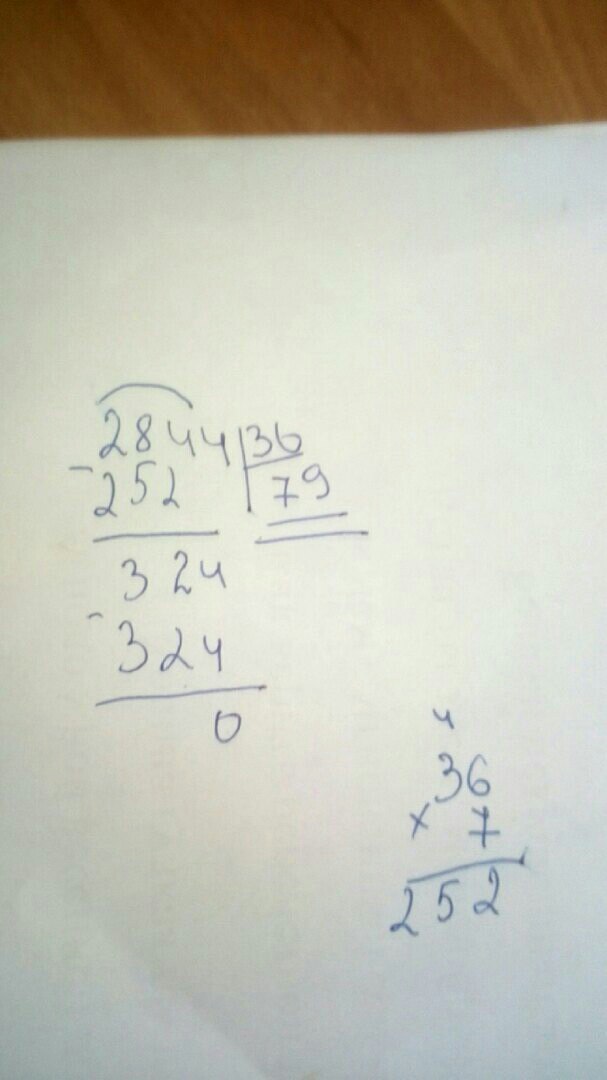 2844 | 36
- 252 | 79
324
- 324
0
4
36
x 7
252